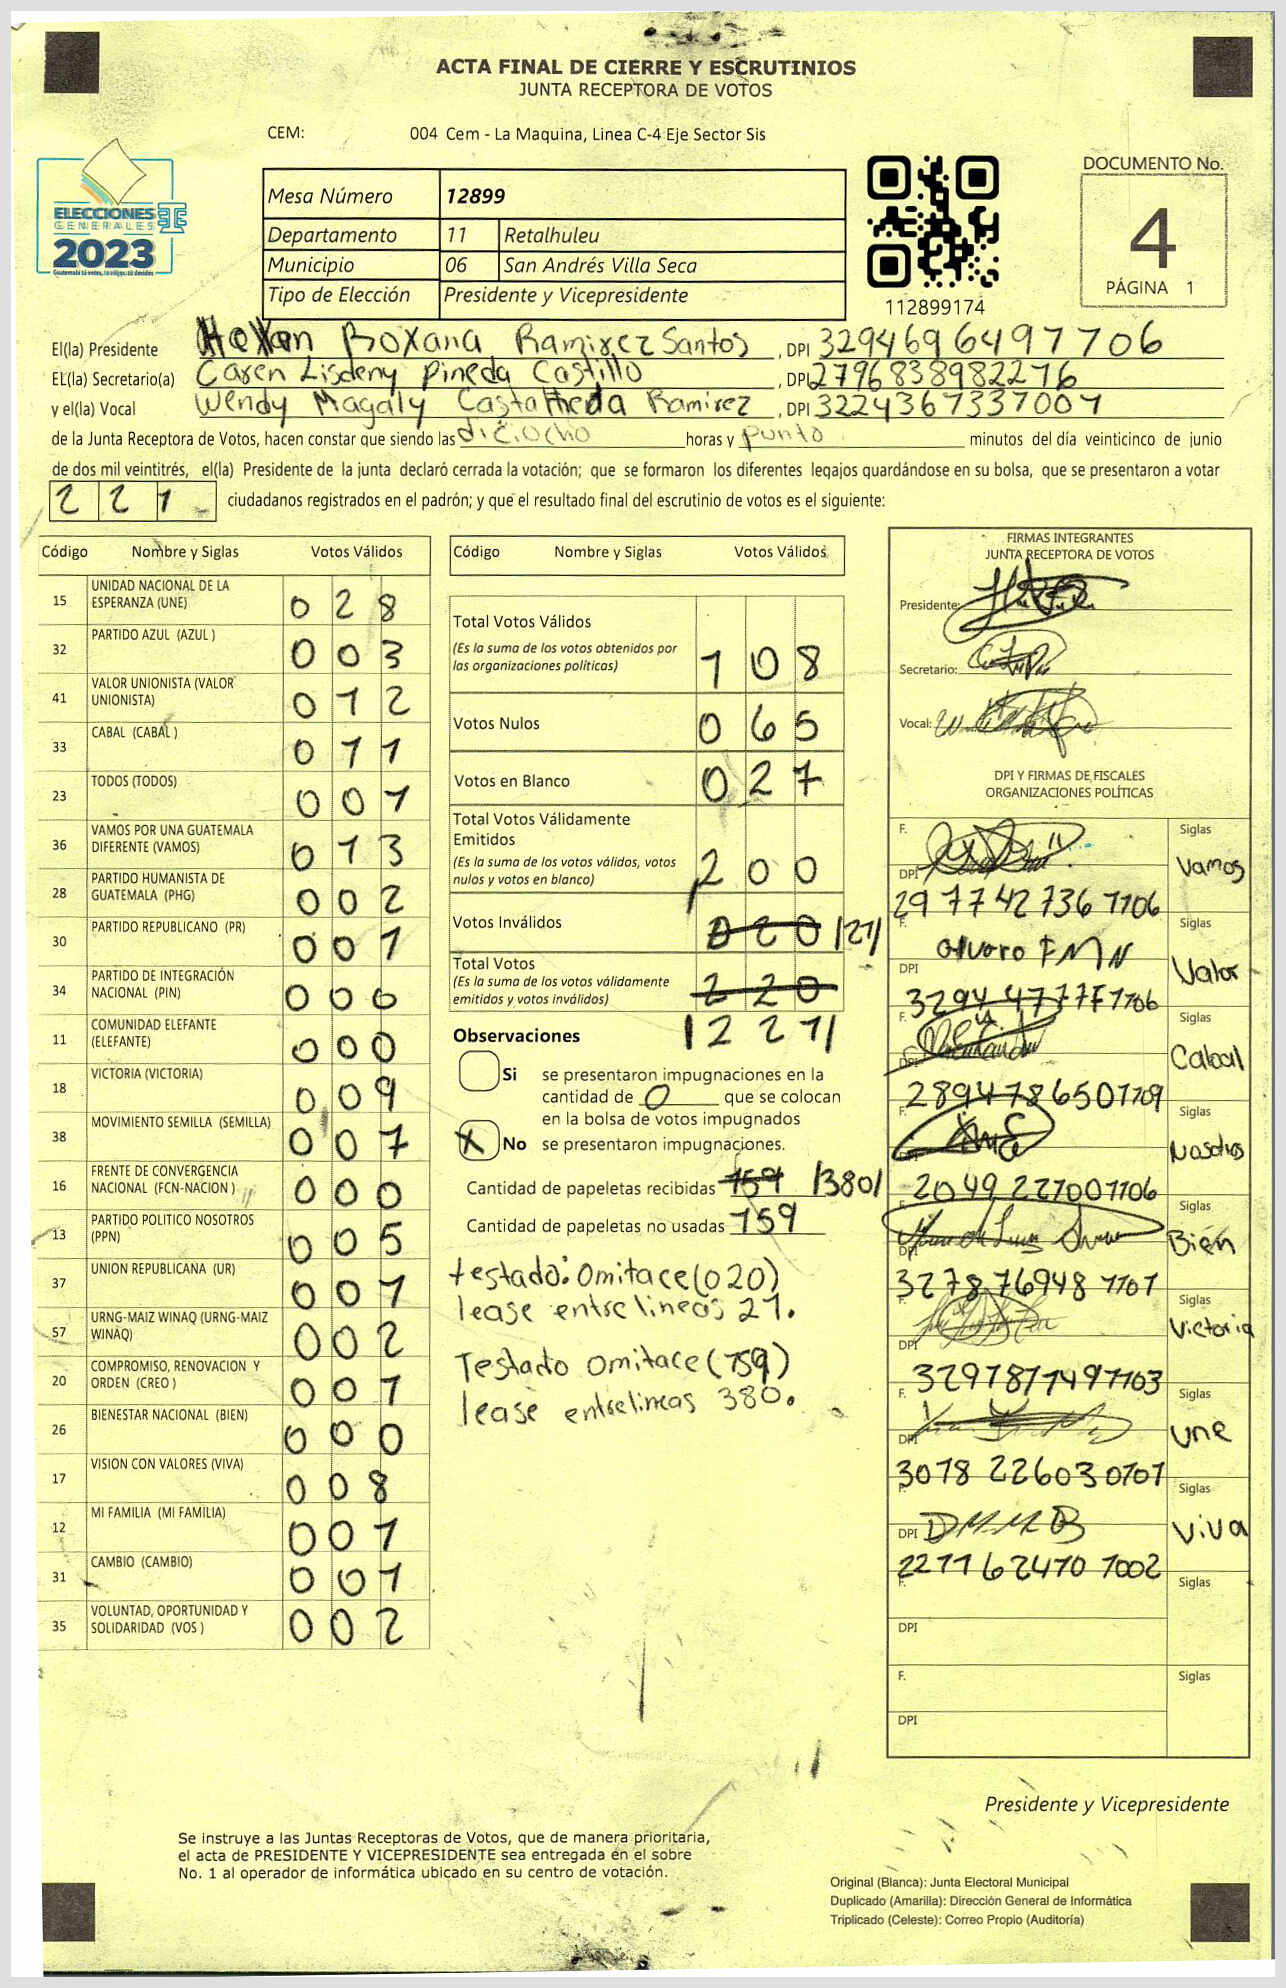 ACTA FINAL DE CIERRE Y ESCRUTINIOS
JUNTA RECEPTORA DE VOTOS
CEM: 004 Cem - La Maquina, Linea C-4 Eje Sector Sis
ELECCIONES
GENERALES
2023
Mesa Número 12899
Departamento 11 Retalhuleu
Municipio 06 San Andrés Villa Seca
Tipo de Elección Presidente y Vicepresidente
112899174
DOCUMENTO No.
4
PÁGINA 1
El(la) Presidente Roxana Ramirez Santos , DPI 3294696497706
EL(la) Secretario(a) Caren Lisdeny Pineda Castillo , DPI 2796838982276
y el(la) Vocal Wendy Magaly Castañeda Ramirez , DPI 3224367337007
de la Junta Receptora de Votos, hacen constar que siendo las diciocho horas y punto minutos del día veinticinco de junio
de dos mil veintitrés, el(la) Presidente de la junta declaró cerrada la votación; que se formaron los diferentes legajos quardándose en su bolsa, que se presentaron a votar
221 ciudadanos registrados en el padrón; y que el resultado final del escrutinio de votos es el siguiente:
Código Nombre y Siglas Votos Válidos
15 UNIDAD NACIONAL DE LA ESPERANZA (UNE) 028
32 PARTIDO AZUL (AZUL ) 003
41 VALOR UNIONISTA (VALOR UNIONISTA) 012
33 CABAL (CABAL ) 011
23 TODOS (TODOS) 001
36 VAMOS POR UNA GUATEMALA DIFERENTE (VAMOS) 013
28 PARTIDO HUMANISTA DE GUATEMALA (PHG) 002
30 PARTIDO REPUBLICANO (PR) 001
34 PARTIDO DE INTEGRACIÓN NACIONAL (PIN) 000
11 COMUNIDAD ELEFANTE (ELEFANTE) 000
18 VICTORIA (VICTORIA) 009
38 MOVIMIENTO SEMILLA (SEMILLA) 007
16 FRENTE DE CONVERGENCIA NACIONAL (FCN-NACION ) 000
13 PARTIDO POLITICO NOSOTROS (PPN) 005
37 UNION REPUBLICANA (UR) 001
57 URNG-MAIZ WINAQ (URNG-MAIZ WINAQ) 002
20 COMPROMISO, RENOVACION Y ORDEN (CREO ) 001
26 BIENESTAR NACIONAL (BIEN) 000
17 VISION CON VALORES (VIVA) 008
12 MI FAMILIA (MI FAMILIA) 001
31 CAMBIO (CAMBIO) 001
35 VOLUNTAD, OPORTUNIDAD Y SOLIDARIDAD (VOS ) 002
Código Nombre y Siglas Votos Válidos
Total Votos Válidos
(Es la suma de los votos obtenidos por las organizaciones politicas) 108
Votos Nulos 065
Votos en Blanco 027
Total Votos Válidamente Emitidos
(Es la suma de los votos válidos, votos nulos y votos en blanco) 200
Votos Inválidos 020 /21/
Total Votos
(Es la suma de los votos válidamente emitidos y votos inválidos) 220
/221/
Observaciones
Si se presentaron impugnaciones en la
cantidad de 0 que se colocan
en la bolsa de votos impugnados
X No se presentaron impugnaciones.
Cantidad de papeletas recibidas 159 /380/
Cantidad de papeletas no usadas 159
testado: Omitace (020)
lease entrelineas 21.
Testado omitace (159)
lease entrelineas 380.
FIRMAS INTEGRANTES
JUNTA RECEPTORA DE VOTOS
Presidente:
Secretario:
Vocal:
DPI Y FIRMAS DE FISCALES
ORGANIZACIONES POLÍTICAS
F. Siglas
DPI Vamos
2977427361106
F. Siglas
alvaro FMN
DPI Valor
F. Siglas
DPI Cabal
2894786501109
F. Siglas
Nosotros
2049227001106
F. Siglas
DPI Bien
3278769481101
F. Siglas
DPI Victoria
3297871491103
F. Siglas
DPI une
3078226030101
F. Siglas
DPI DMMB viva
2271624701002
F. Siglas
DPI
F. Siglas
DPI
Presidente y Vicepresidente
Se instruye a las Juntas Receptoras de Votos, que de manera prioritaria,
el acta de PRESIDENTE Y VICEPRESIDENTE sea entregada en el sobre
No. 1 al operador de informática ubicado en su centro de votación.
Original (Blanca): Junta Electoral Municipal
Duplicado (Amarilla): Dirección General de Informática
Triplicado (Celeste): Correo Propio (Auditoría)